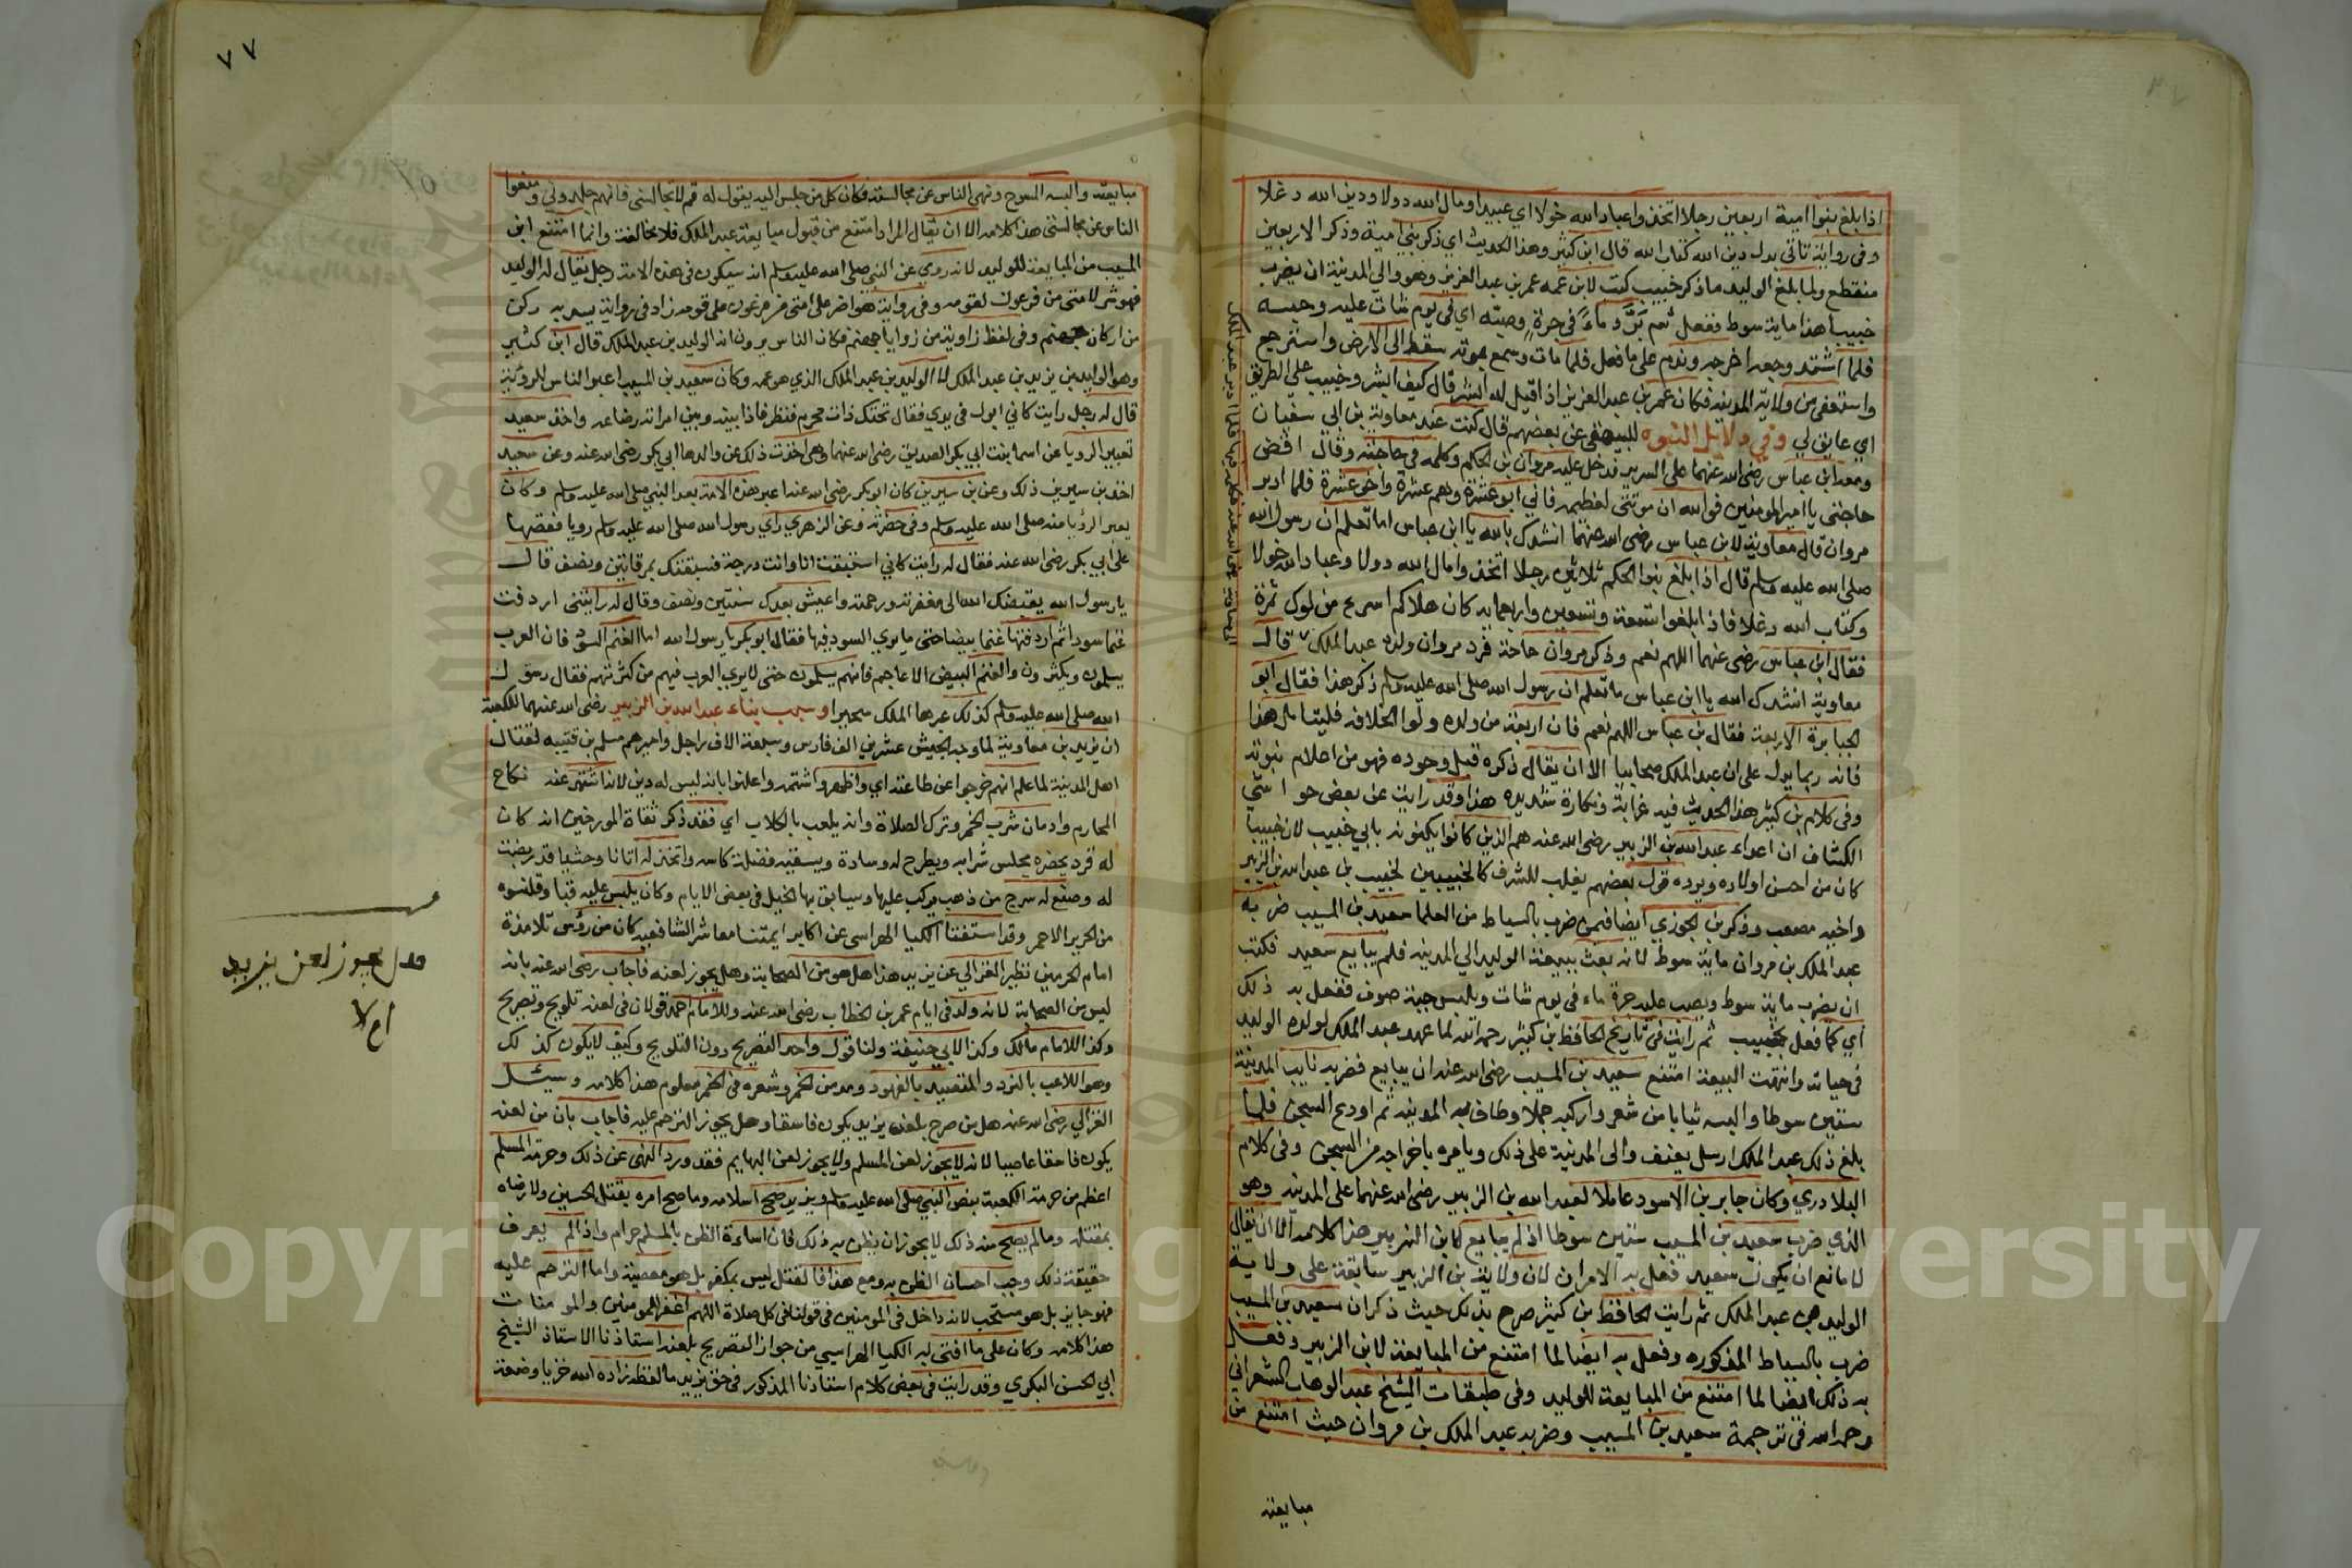 اذا بلغ بنوا امية اربعين رجلا اتخذوا عباد الله خولا اي عبيدا ومال الله دولا ودين الله دغلا
وفى رواية تاتي بدل دين الله كتاب الله قال ابن كثير وهذا الحديث اي ذكر بني امية وذكر الاربعين
منقطع ولما بلغ الوليد ما ذكر خبيب كتب لابن عمه عمر بن عبد العزيز وهو والي المدينة ان يضرب
خبيبا هذا ماية سوط ففعل ثم برّد ماءً في جرة وصبّه اي فى يوم شات عليه وحبسه
فلما اشتد وجعه اخرجه وندم على ما فعل فلما مات وسمع بموته سقط الى الارض واسترجع
واستعفى من ولاية المدينة فكان عمر بن عبد العزيز اذا قيل له ابشر قال كيف ابشر وخبيب علي الطريق
اي عايق لي وفي دلايل النبوه للبيهقى عن بعضهم قال كنت عند معاوية بن ابي سفيان
ومعه ابن عباس رضى الله عنهما على السرير فدخل عليه مروان بن الحكم وكلمه في حاجته وقال اقض
حاجتى يا امير المومنين فوالله ان موتتى لعظيمه فاني ابو عشرة وعم عشرة واخو عشرة فلما ادبر
مروان قال معاوية لابن عباس رضى الله عنهما انشدك بالله يا ابن عباس اما تعلم ان رسول الله
صلى الله عليه وسلم قال اذا بلغ بنوا الحكم ثلاثين رجلا اتخذوا مال الله دولا وعباد الله خولا
وكتاب الله دغلا فاذا بلغوا تسعة وتسعين واربعماية كان هلاكم اسرع من لوك تمرة
فقال ابن عباس رضى عنهما اللهم نعم وذكر مروان حاجة فرد مروان ولده عبد الملك قال
معاوية انشدك الله يا ابن عباس ما تعلم ان رسول الله صلى الله عليه وسلم ذكر هذا فقال ابو
الجبابرة الاربعة فقال بن عباس اللهم نعم فان اربعة من ولده ولوا الخلافه فليتامل هذا
فانه ربما يدل على ان عبد الملك صحابيا الا ان يقال ذكره قبل وجوده فهو من اعلام نبوته
وفى كلام بن كثير هذا الحديث فيه غرابة ونكارة شديده هذا وقد رايت عن بعض حواشي
الكشاف ان اعداء عبد الله بن الزبير رضى الله عنه هم الذين كانوا يكنونه بابي خبيب لان خبيبا
كان من احسن اولاده ويرده قول بعضهم يغلب للشرف كالخبيبين لخبيب بن عبد الله بن الزبير
واخيه مصعب وذكر بن الجوزي ايضا فيمن ضرب بالسياط من العلما سعيد بن المسيب ضربه
عبد الملك بن مروان ماية سوط لانه بعث ببيعة الوليد الي المدينه فلم يبايع سعيد فكتب
ان يضرب ماية سوط ويصب عليه جرة ماء فى يوم شات ويلبس جبة صوف ففعل به ذلك
اي كما فعل بخبيب ثم رايت فى تاريخ الحافظ بن كثير رحمه الله لما عهد عبد الملك لولده الوليد
فى حياته وانتهت البيعة امتنع سعيد بن المسيب رضى الله عنه ان يبايع فضربه نايب المدينة
ستين سوطا والبسه ثيابا من شعر واركبه جملا وطاف به المدينه ثم اودع السجن فلما
بلغ ذلك عبد الملك ارسل يعنف والى المدينة على ذلك ويامره باخراجه من السجن وفى كلام
البلادري وكان جابر بن الاسود عاملا لعبد الله بن الزبير رضى الله عنهما على المدينه وهو
الذي ضرب سعيد بن المسيب ستين سوطا اذ لم يبايع لابن الزبير هذا كلامه الا ان يقال
لا مانع ان يكون سعيد فعل به الامران لان ولاية بن الزبير سابقة على ولاية
الوليد بن عبد الملك ثم رايت الحافظ بن كثير صرح بذلك حيث ذكر ان سعيد بن المسيب
ضرب بالسياط المذكوره وفعل به ايضا لما امتنع من المبايعة لابن الزبير وفعل
به ذلك ايضا لما امتنع من المبايعة للوليد وفى طبقات الشيخ عبد الوهاب الشعراني
رحمه الله فى ترجمة سعيد بن المسيب وضربه عبد الملك بن مروان حيث امتنع من
مبايعته
٧٧
مبايعته والبسه المسوح ونهى الناس عن مجالسته فكان كل من جلس اليه يقول له قم لا تجالسنى فانهم جلدونى ومنعوا
الناس عن مجالستى هذا كلامه الا ان يقال المراد امتنع من قبول مبايعة عبد الملك فلا مخالفة وانما امتنع ابن
المسيب من المبايعة للوليد لانه روي عن النبى صلى الله عليه وسلم انه سيكون فى هذه الامة رجل يقال له الوليد
فهو شر لامتى من فرعون لقومه وفى رواية هو اضر على امتى من فرعون على قومه زاد فى رواية يسد به ركن
من اركان جهنم وفى لفظ زاوية من زوايا جهنم فكان الناس يرون انه الوليد بن عبد الملك قال ابن كثير
وهو الوليد بن يزيد بن عبد الملك لا الوليد بن عبد الملك الذي هو عمه وكان سعيد بن المسيب اعبر الناس للرويا
قال له رجل رايت كاني ابول فى يدي فقال تحتك ذات محرم فنظر فاذا بينه وبين امراته رضاعه واخذ سعيد
تعبير الرويا عن اسما بنت ابي بكر الصديق رضى الله عنهما وهى اخذت ذلك عن والدها ابي بكر رضى الله عنه وعن سعيد
اخذ بن سيرين ذلك وعن بن سيرين كان ابو بكر رضى الله عنه اعبر هذه الامة بعد النبي صلى الله عليه وسلم وكان
يعبر الرؤيا منه صلى الله عليه وسلم وفى حضرته وعن الزهري راي رسول الله صلى الله عليه وسلم رويا فقصها
على ابي بكر رضى الله عنه فقال له رايت كاني استبقت انا وانت درجة فسبقتك بمرقاتين ونصف قال
يا رسول الله يقبضك الله الى مغفرته ورحمته واعيش بعدك سنتين ونصف وقال له رايتنى اردفت
غنما سودا ثم اردفتها غنما بيضا حتى ما يري السود فيها فقال ابو بكر يا رسول الله اما الغنم السود فان العرب
يسلمون ويكثرون والغنم البيض الاعاجم فانهم يسلمون حتى لا يري العرب فيهم من كثرتهم فقال رسول
الله صلى الله عليه وسلم كذلك عبرها الملك سحيرا وسبب بناء عبد الله بن الزبير رضى الله عنهما للكعبة
ان يزيد بن معاوية لما وجه الجيش عشرين الف فارس وسبعة الاف راجل واميرهم مسلم بن قتيبه لقتال
اهل المدينة لما علم انهم خرجوا عن طاعته اي واظهروا شتمه واعلنوا بانه ليس له دين لانه اشتهر عنه نكاح
المحارم وادمان شرب الخمر وترك الصلاة وانه يلعب بالكلاب اي فقد ذكر ثقاة المورخين انه كان
له قرد يحضره مجلس شرابه ويطرح له وسادة ويسقيه فضلة كاسه واتخذ له اتانا وحشيا قد ريضت
له وصنع له سرج من ذهب يركب عليها ويسابق بها الخيل فى بعض الايام وكان يلبس عليه قبا وقلنسوه
من الحرير الاحمر وقد استفتنا الكيا الهراسى عن اكابر ايمتنا معاشر الشافعيه كان من رؤس تلامذة
امام الحرمين نظير الغزالي عن يزيد هذا هل هو من الصحابة وهل يجوز لعنه فاجاب رضى الله عنه بانه
ليس من الصحابة لانه ولد فى ايام عمر بن الخطاب رضى الله عنه وللامام احمد قولان فى لعنه تلويح وتصريح
وكذا للامام مالك وكذا لابي حنيفة ولنا قول واحد التصريح دون التلويح وكيف لا يكون كذلك
وهو اللاعب بالنرد والمتصيد بالفهود ومدمن الخمر وشعره فى الخمر معلوم هذا كلامه وسئل
الغزالي رضى الله عنه هل من صرح بلعن يزيد يكون فاسقا وهل يجوز الترحم عليه فاجاب بان من لعنه
يكون فاسقا عاصيا لانه لا يجوز لعن المسلم ولا يجوز لعن البهايم فقد ورد النهى عن ذلك وحرمة المسلم
اعظم من حرمة الكعبة بنص النبي صلى الله عليه وسلم ويزيد صح اسلامه وما صح امره بقتل الحسين ولا رضاه
بقتله وما لم يصح منه ذلك لا يجوز ان يظن به ذلك فان اساءة الظن بالمسلم حرام واذا لم يعرف
حقيقة ذلك وجب احسان الظن به ومع هذا فالقتل ليس بكفر بل هو معصية واما الترحم عليه
فهو جايز بل هو مستحب لانه داخل فى المومنين فى قولنا فى كل صلاة اللهم اغفر للمومنين والمومنات
هذا كلامه وكان على ما افتى به الكيا الهراسي من جواز التصريح بلعنه استاذنا الاستاذ الشيخ
ابي الحسن البكري وقد رايت فى بعض كلام استاذنا المذكور فى حق يزيد ما لفظه زاده الله خزيا وضعة
هل يجوز لعن يزيد
ام لا
Copyright © King Saud University